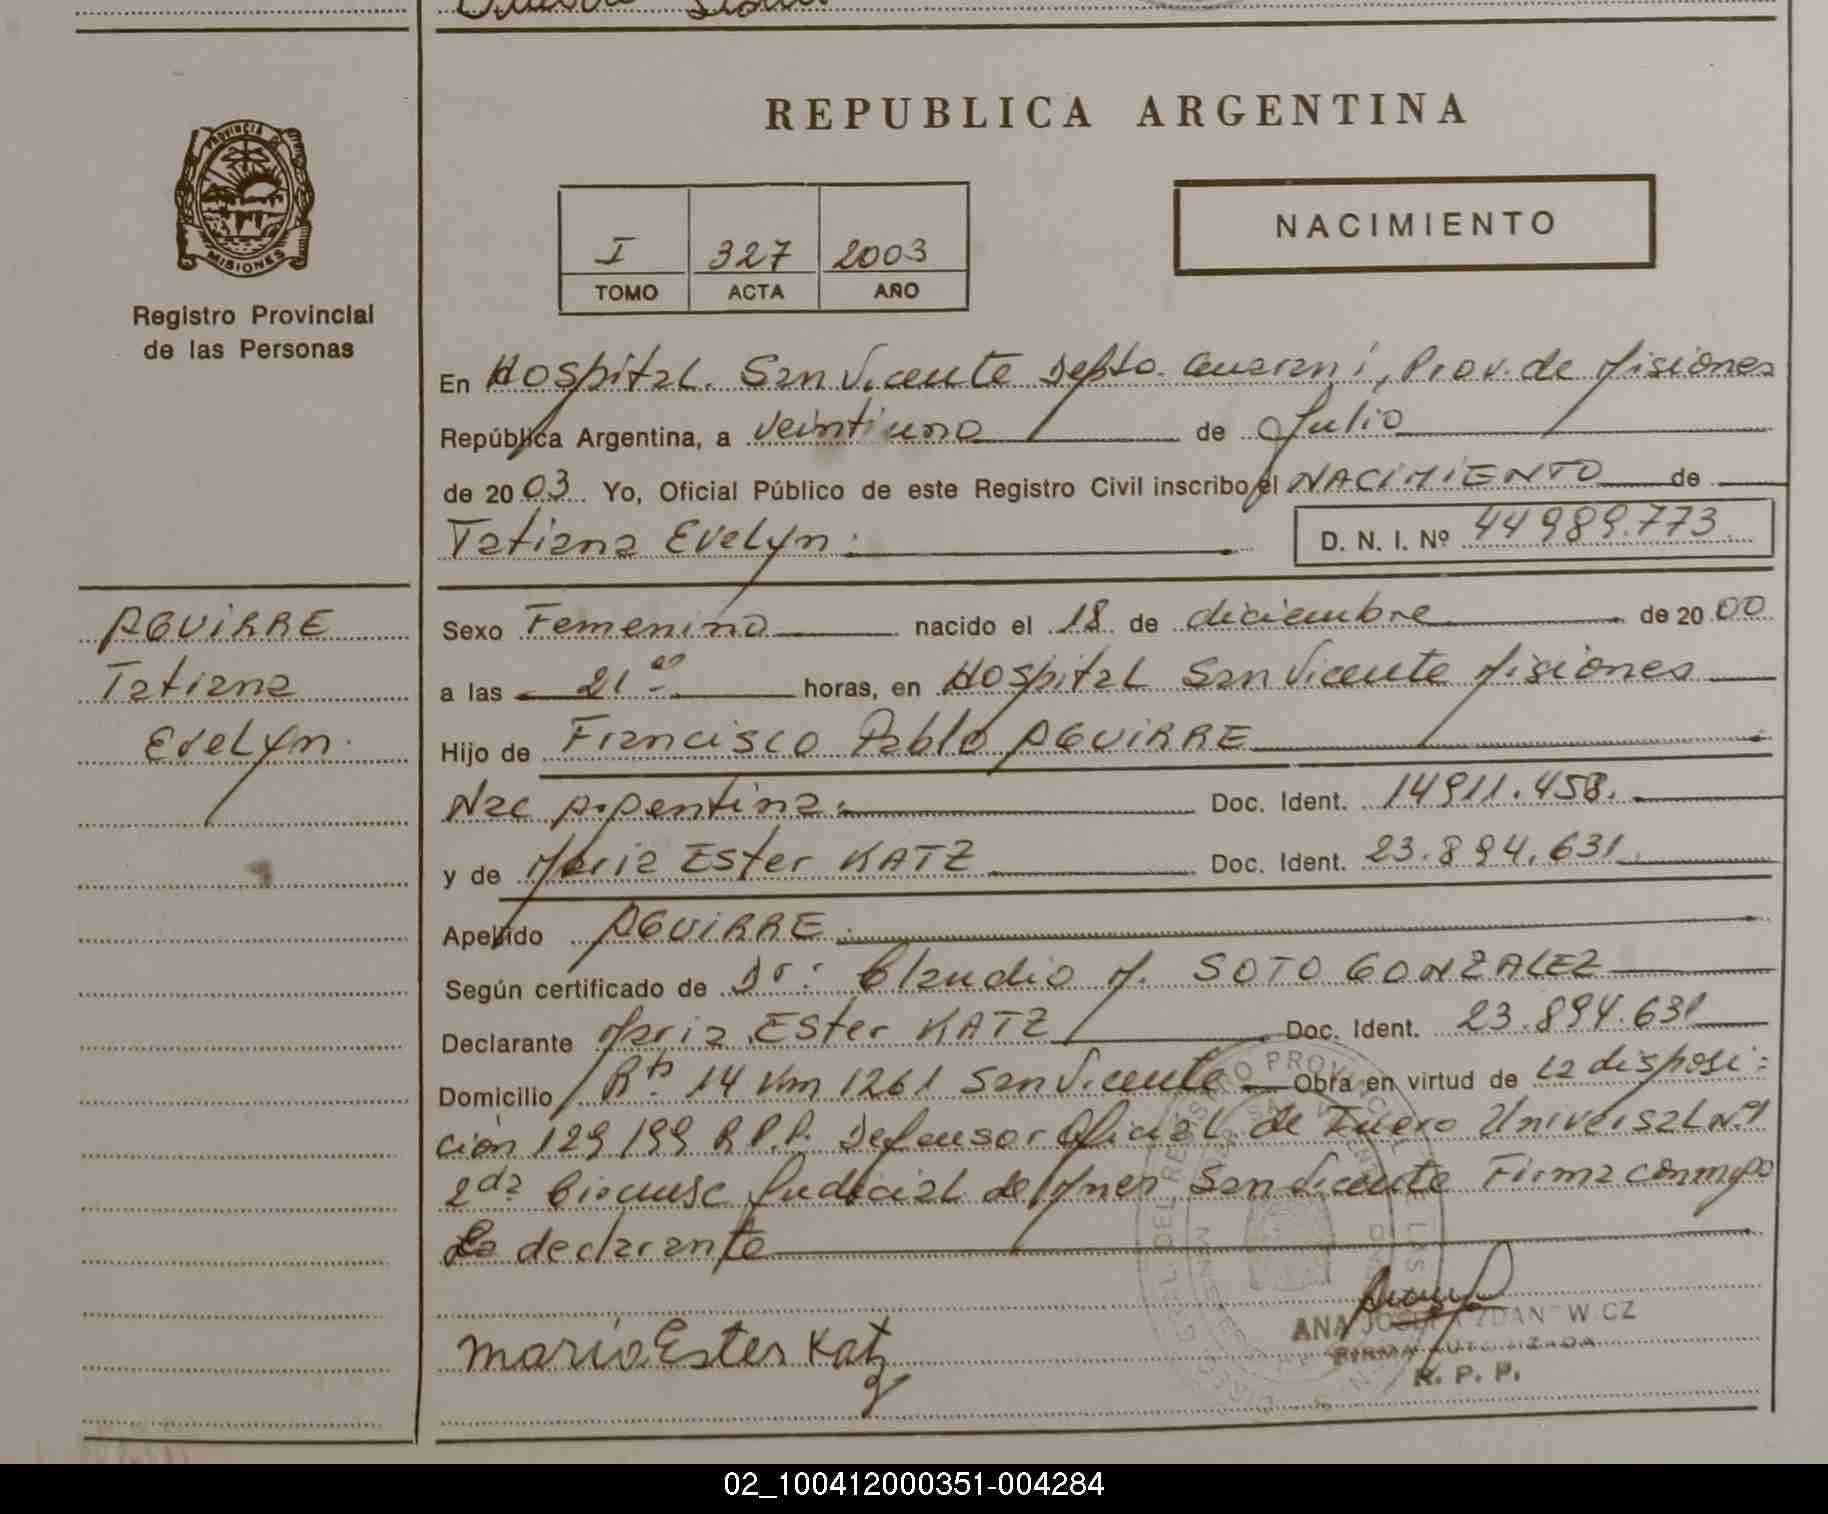 REPUBLICA ARGENTINA
PROVINCIA DE MISIONES
Registro Provincial
de las Personas
I 327 2003
TOMO ACTA AÑO
NACIMIENTO
En Hospital. San Vicente Depto. Guarani, Prov. de Misiones
República Argentina, a veintiuno de Julio
de 2003 Yo, Oficial Público de este Registro Civil inscribo el NACIMIENTO de
Tatiana Evelyn. D. N. I. Nº 44989.773
AGUIRRE
Tatiana
Evelyn.
Sexo Femenino nacido el 18 de diciembre de 2000
a las 21 00 horas, en Hospital San Vicente Misiones
Hijo de Francisco Pablo AGUIRRE
Nac Argentina. Doc. Ident. 14911.458.
y de Maria Ester KATZ Doc. Ident. 23.894.631
Apellido AGUIRRE.
Según certificado de Dr: Claudio M. SOTO GONZALEZ
Declarante Maria ESter KATZ Doc. Ident. 23.894.631
Domicilio Rta 14 Km 1261 San Vicente Obra en virtud de La disposi=
ción 129/99 R.P.P. Defensor Oficial de Fuero Universal Nº1
2da Circunsc Judicial de Mnes San Vicente Firma conmigo
La declarante
Maria Ester Katz
ANA JOSEFA ZDANOWICZ
FIRMA AUTORIZADA
R. P. P.
02_100412000351-004284